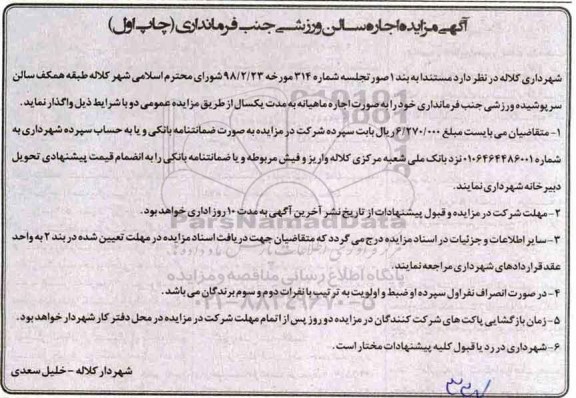 آگهی مزایده اجاره سالن ورزشی جنب فرمانداری (چاپ اول)
شهرداری کلاله در نظر دارد مستندا به بند ۱ صورتجلسه شماره ۳۱۴ مورخه ۹۸/۲/۲۳ شورای محترم اسلامی شهر کلاله طبقه همکف سالن
سرپوشیده ورزشی جنب فرمانداری خود را به صورت اجاره ماهیانه به مدت یکسال از طریق مزایده عمومی دو با شرایط ذیل واگذار نماید.
۱- متقاضیان می بایست مبلغ ۶/۲۷۰/۰۰۰ ریال بابت سپرده شرکت در مزایده به صورت ضمانتنامه بانکی و یا به حساب سپرده شهرداری به
شماره ۰۱۰۶۴۶۴۴۸۶۰۰۱ نزد بانک ملی شعبه مرکزی کلاله واریز و فیش مربوطه و یا ضمانتنامه بانکی را به انضمام قیمت پیشنهادی تحویل
دبیرخانه شهرداری نمایند.
۲- مهلت شرکت در مزایده و قبول پیشنهادات از تاریخ نشر آخرین آگهی به مدت ۱۰ روز اداری خواهد بود.
ParsNamadData
۳- سایر اطلاعات و جزئیات در اسناد مزایده درج می گردد که متقاضیان جهت دریافت اسناد مزایده در مهلت تعیین شده در بند ۲ به واحد
عقد قراردادهای شهرداری مراجعه نمایند.
پایگاه اطلاع رسانی مناقصه و مزایده
۴- در صورت انصراف نفر اول سپرده او ضبط و اولویت به ترتیب با نفرات دوم و سوم برندگان می باشد.
۵- زمان بازگشایی پاکت های شرکت کنندگان در مزایده دو روز پس از اتمام مهلت شرکت در مزایده در محل دفتر کار شهردار خواهد بود.
۶- شهرداری در رد یا قبول کلیه پیشنهادات مختار است.
شهردار کلاله - خلیل سعدی